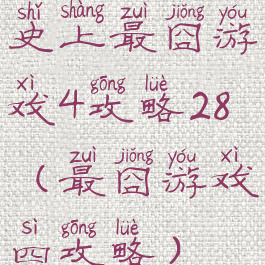 shǐ shàng zuì jiǒng yóu
史上最囧游
xì gōng lüè
戏4攻略28
zuì jiǒng yóu xì
（最囧游戏
sì gōng lüè
四攻略）